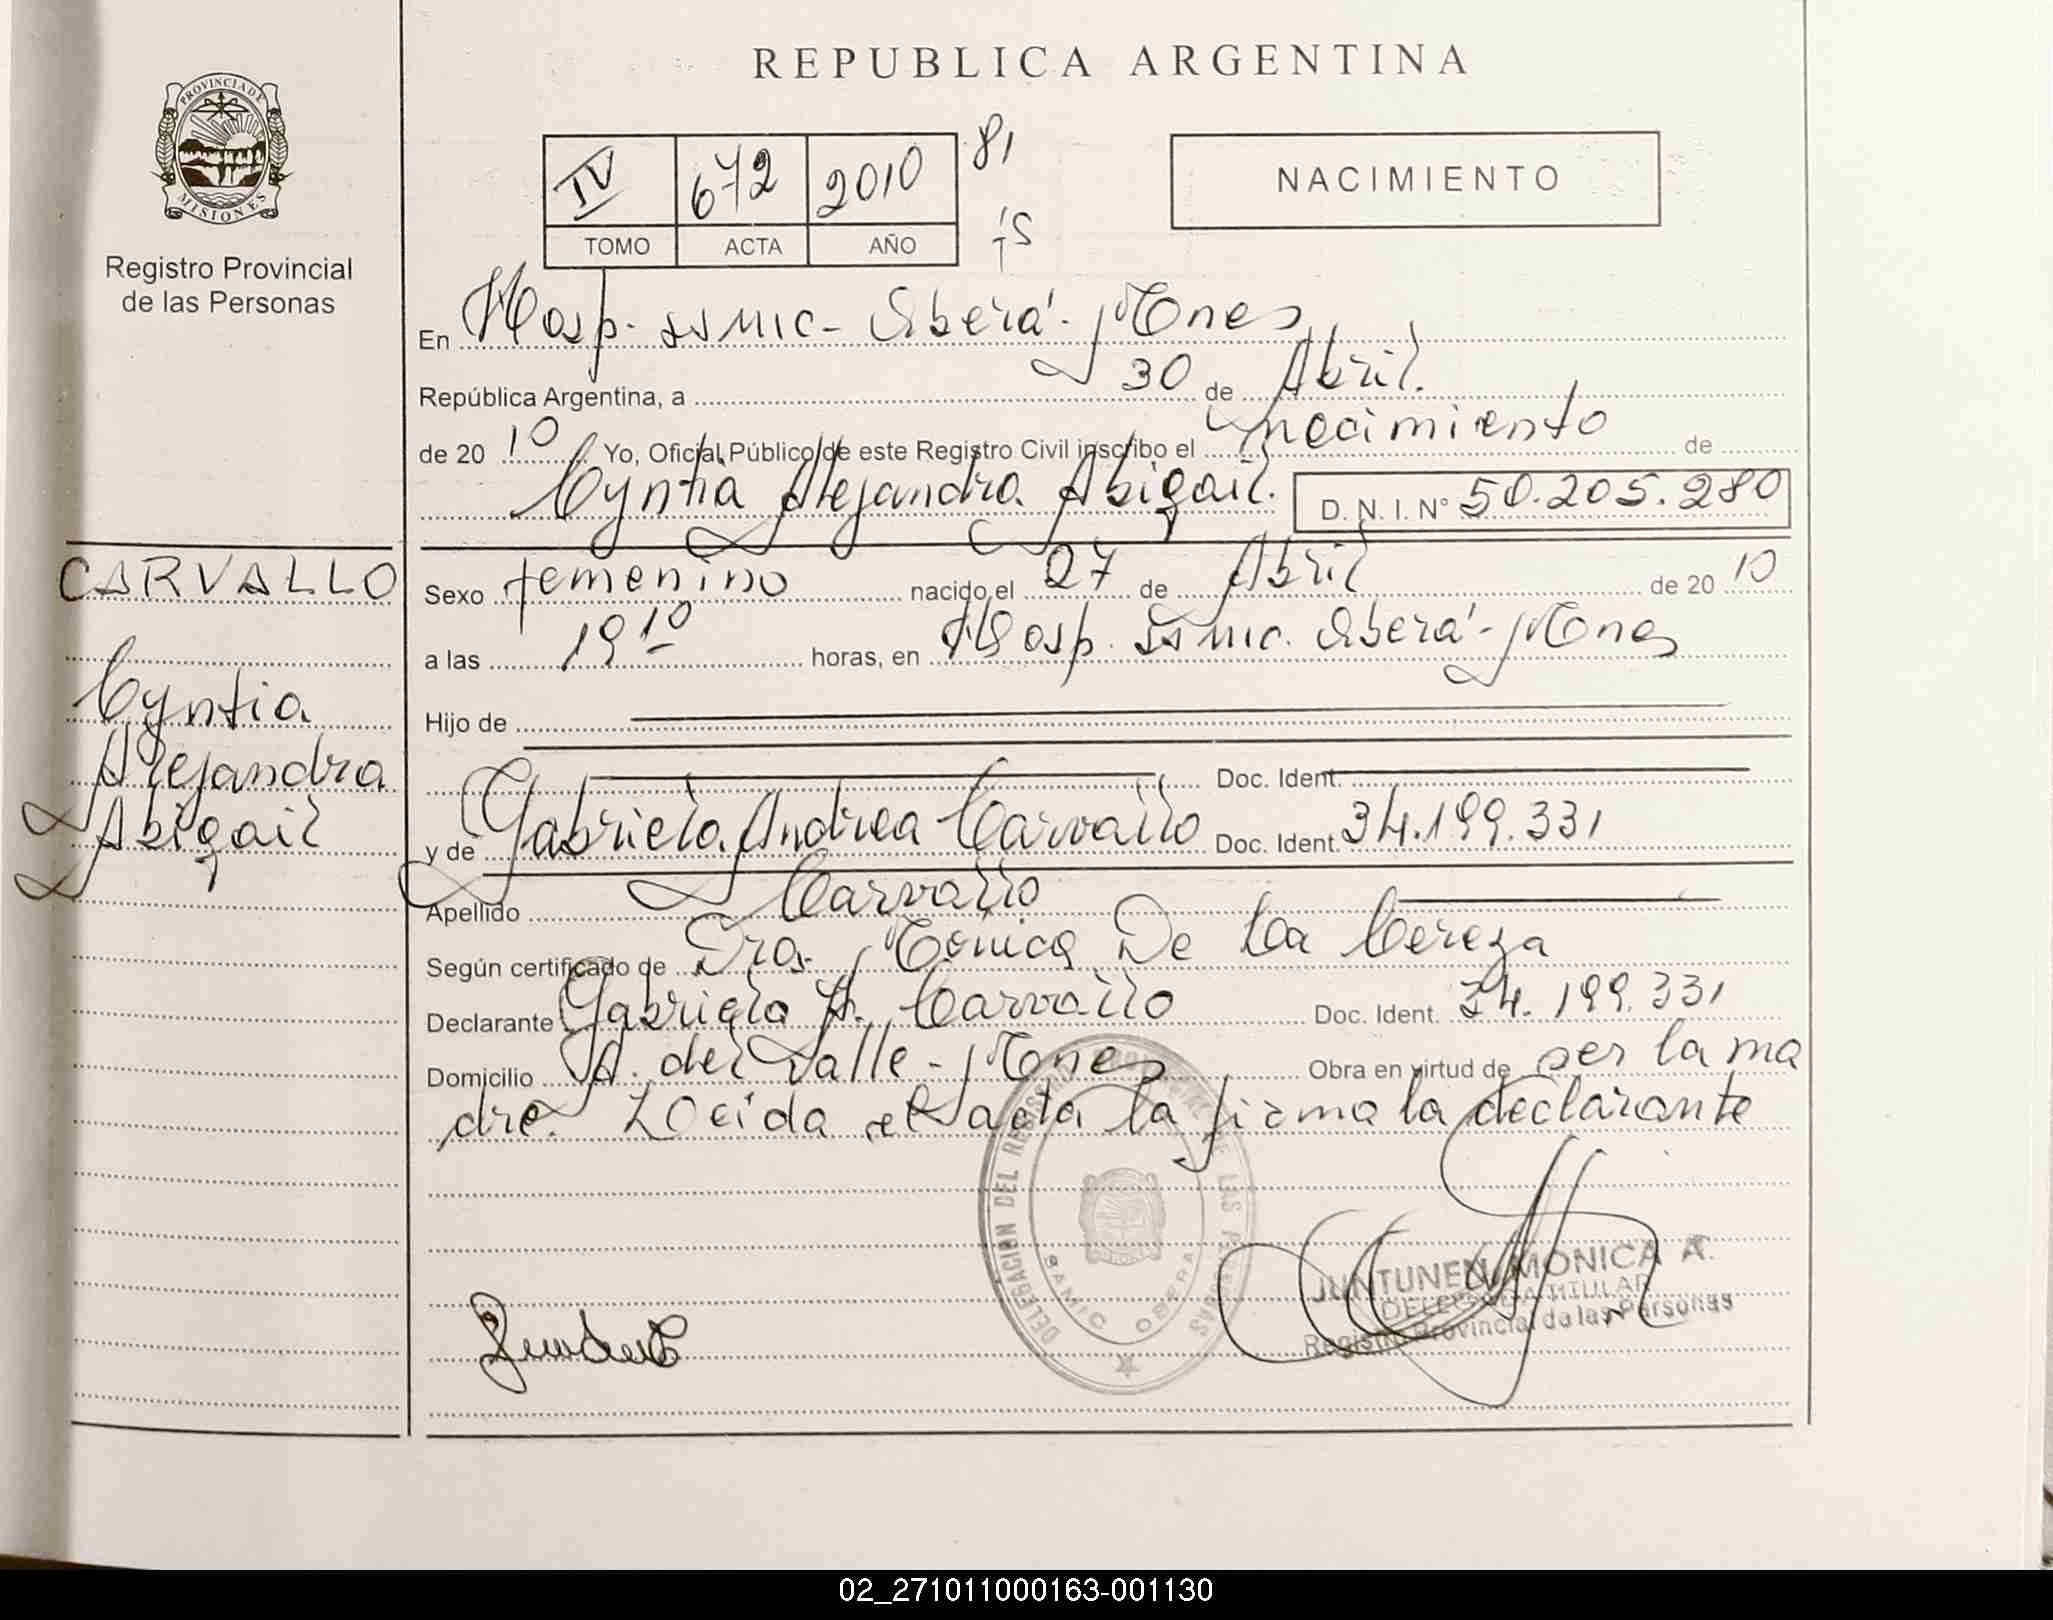 REPUBLICA ARGENTINA
PROVINCIA DE
MISIONES
Registro Provincial
de las Personas
IV 672 2010 81
TOMO ACTA AÑO
NACIMIENTO
En Hosp. SAMIC - Oberá - Mones
República Argentina, a 30 de Abril.
de 20 10 Yo, Oficial Público de este Registro Civil inscribo el nacimiento de
Cyntia Alejandra Abigail. D. N. I. Nº 50.205.280
CARVALLO
Cyntia
Alejandra
Abigail
Sexo femenino nacido el 27 de Abril de 20 10
a las 19 10 horas, en Hosp. SAMIC. Oberá - Mones
Hijo de
Doc. Ident.
y de Gabriela Andrea Carvallo Doc. Ident. 34.199.331
Apellido Carvallo
Según certificado de Dra. Monica De La Cereza
Declarante Gabriela A. Carvallo Doc. Ident. 34.199.331
Domicilio A. del Valle - Mones Obra en virtud de ser la ma
dre. Leida el acta la firma la declarante
DELEGACION DEL REGISTRO PROVINCIAL DE LAS PERSONAS
SAMIC OBERA
JUNTUNEN, MONICA A.
DELEGADA TITULAR
Registro Provincial de las Personas
02_271011000163-001130